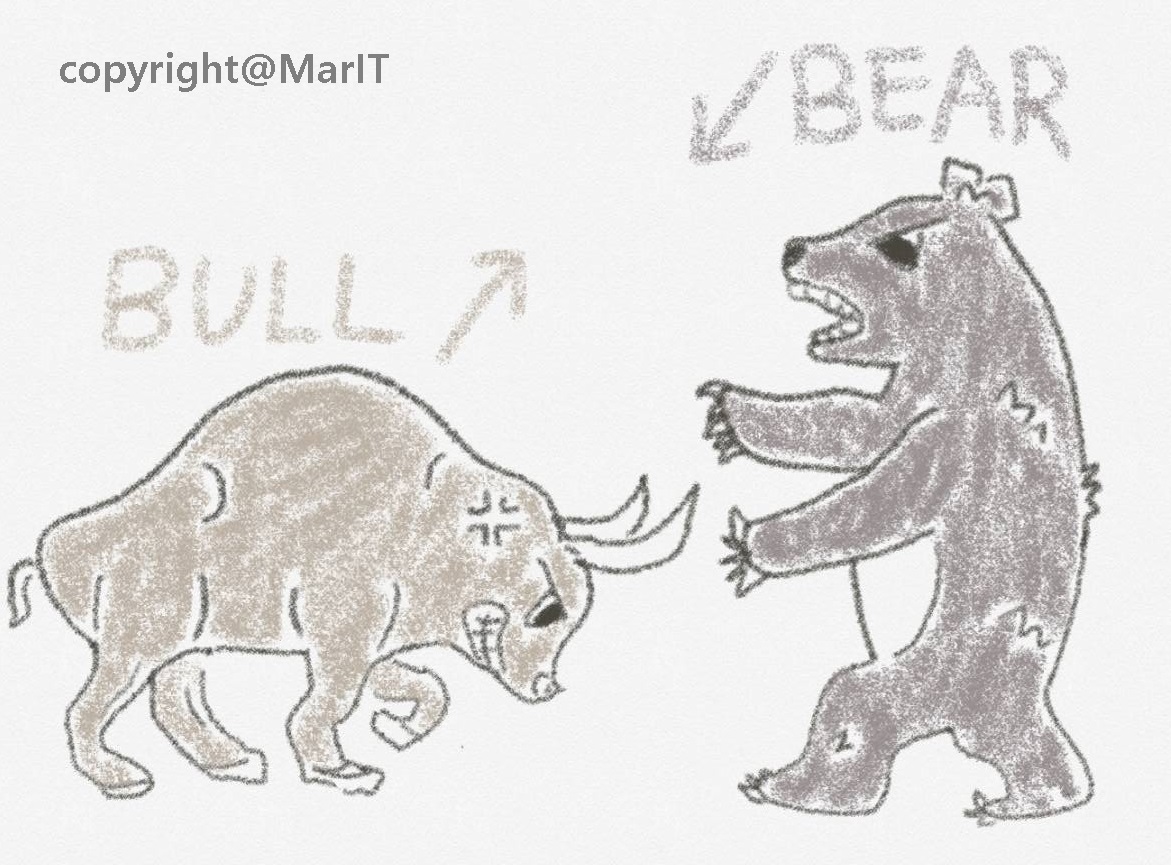 copyright@MarIT
BEAR
BULL